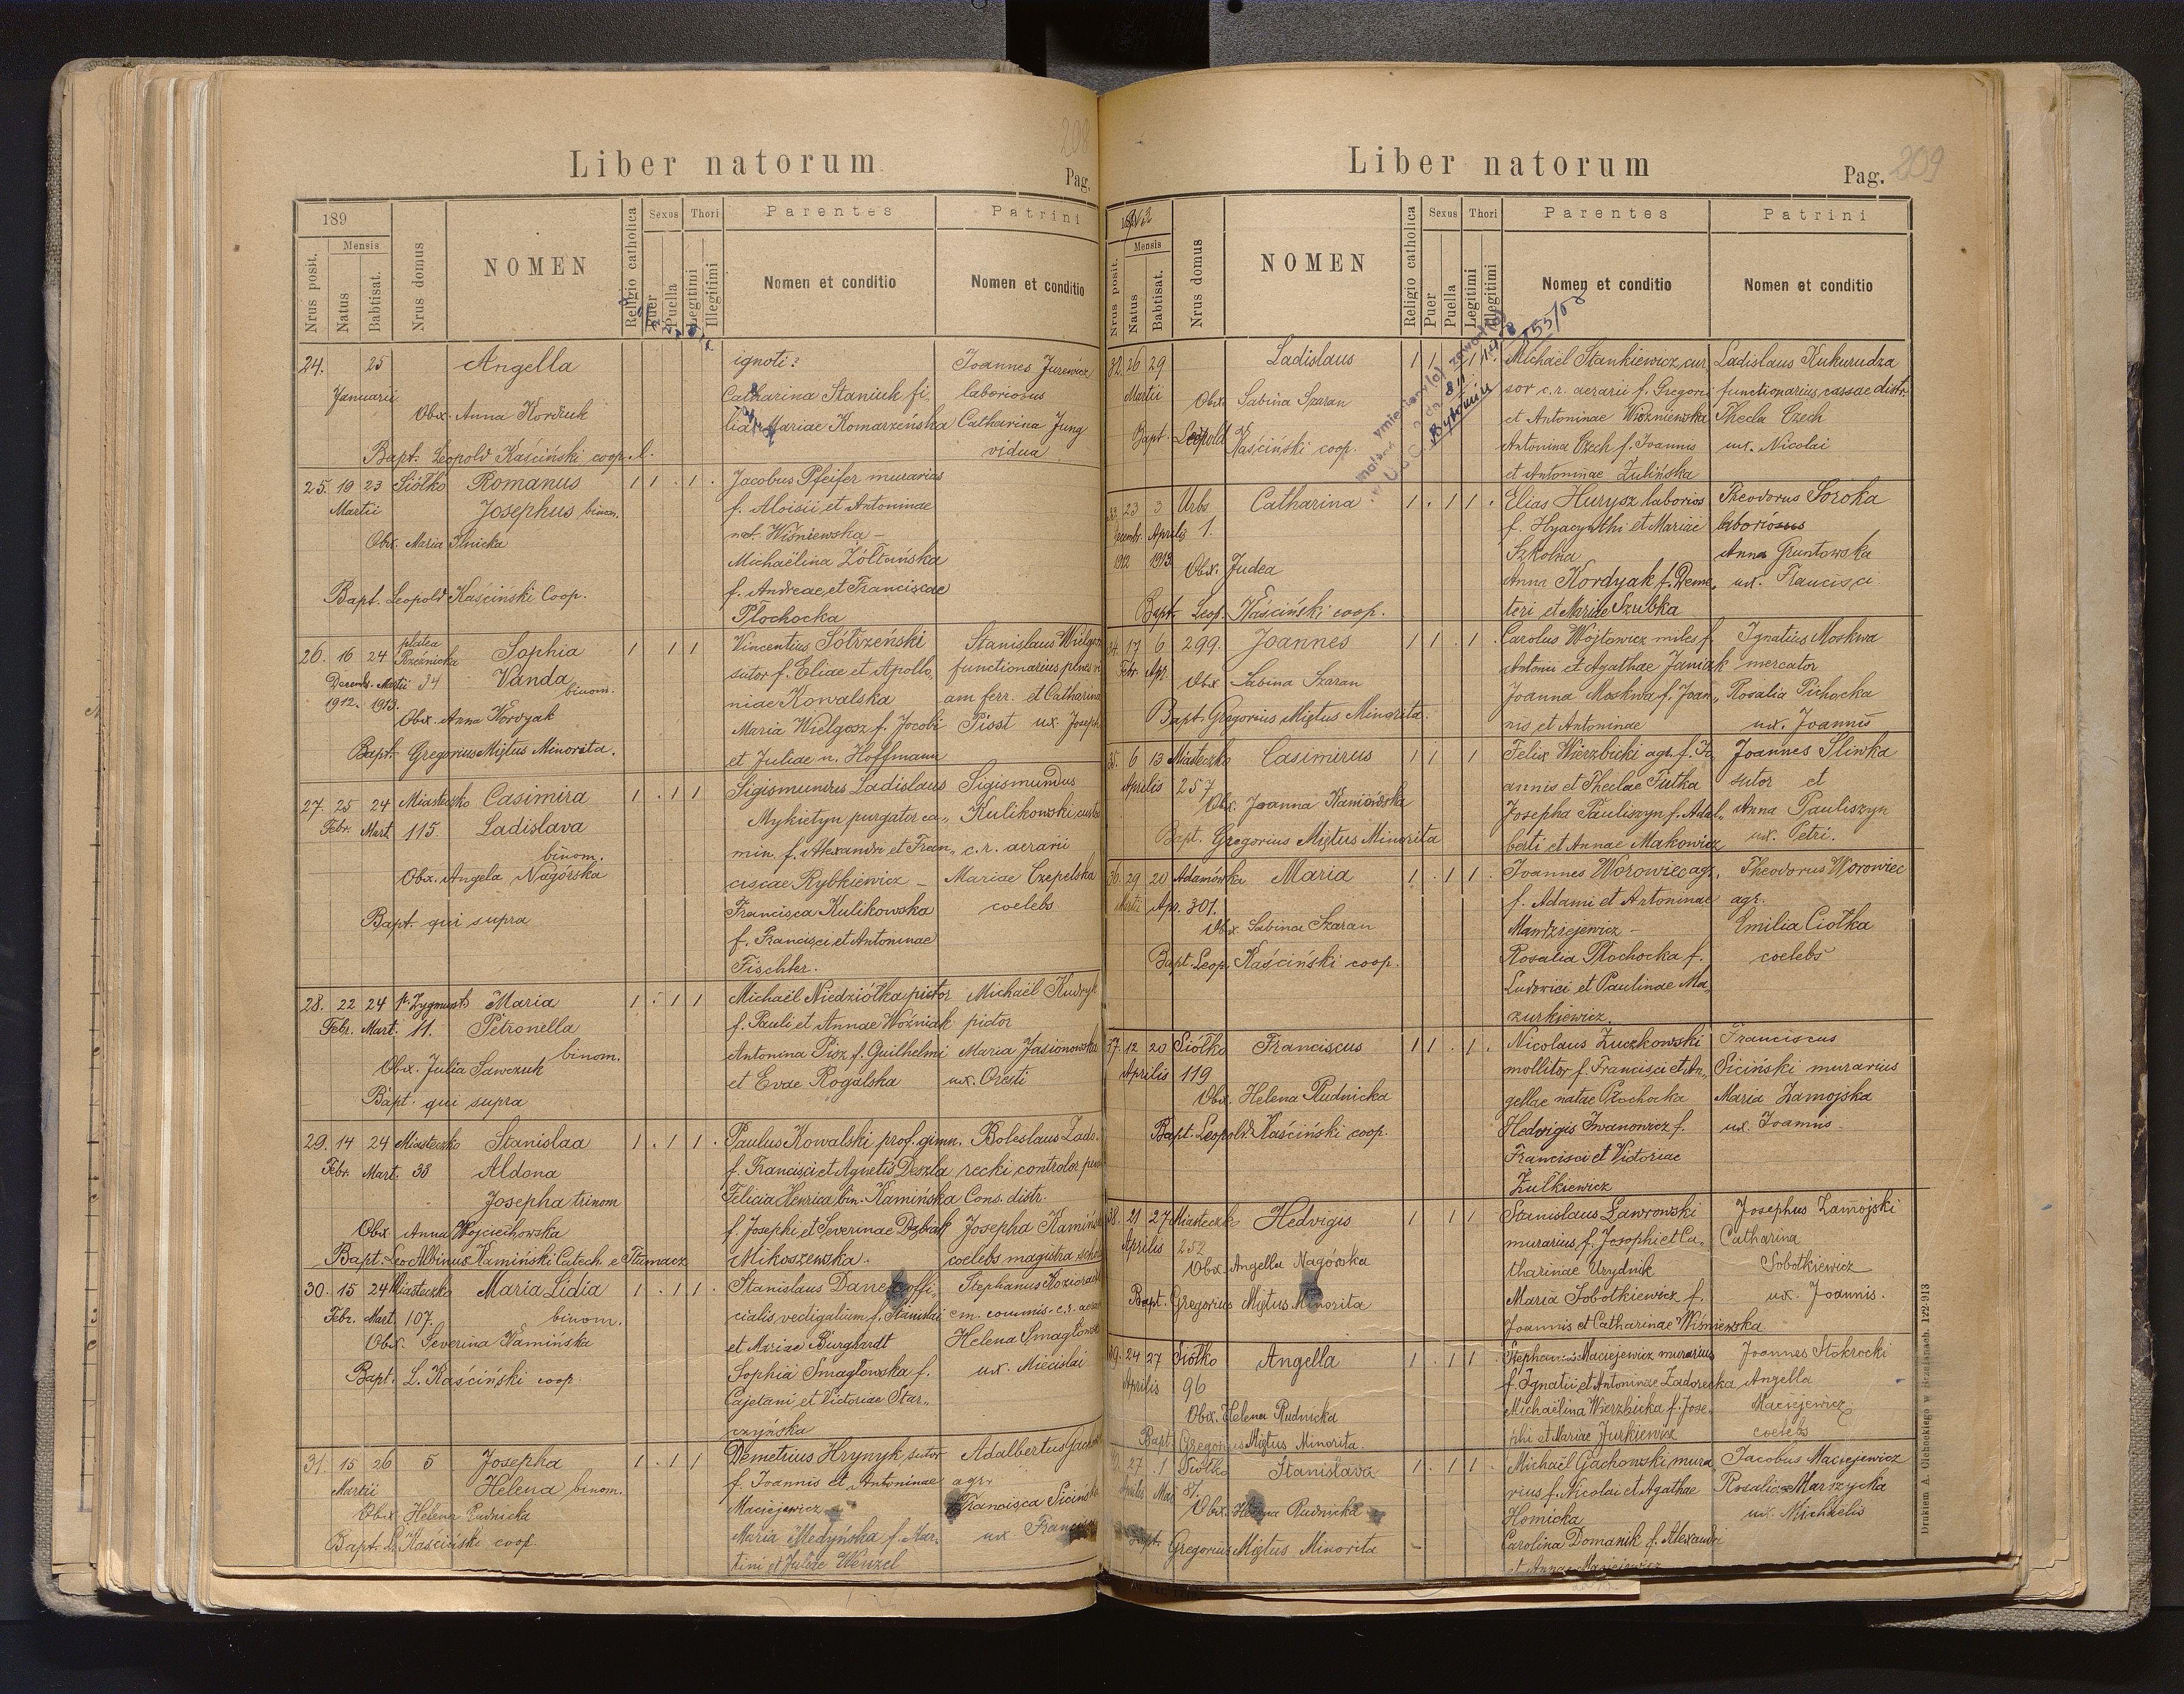 208
Liber natorum
Pag.
189
Nrus posit.
Mensis
Natus
Babtisat.
Nrus domus
NOMEN
Religio catholica
Sexus
Puer
Puella
Thori
Legitimi
Illegitimi
Parentes
Nomen et conditio
Patrini
Nomen et conditio
24. 25 Angella
Januarii
Obx. Anna Kordiuk
Bapt. Leopold Kaściński coop.
ignoti?
Catharina Staniuk fi
lia Mariae Komarzeńska
Joannes Jurewicz
laboriosus
Catharina Jung
vidua
25. 19 23 Siółko Romanus 1 1 . 1 .
Martii Josephus binom.
Obx. Maria Ilnicka
Bapt. Leopold Kaściński Coop.
Jacobus Pfeifer murarius
f. Aloisii et Antoninae
nat. Wiśniewska –
Michaëlina Żółtańska
f. Andreae et Franciscae
Płochocka
26. 16 24 platea Rzeźnicka Sophia 1 . 1 1
Decemb. Martii 34 Vanda
1912. 1913. binom.
Obx. Anna Kordyak
Bapt. Gregorius Miętus Minorita.
Vincentius Sótrzeński
sutor f. Eliae et Apollo,,
niae Kowalska
Maria Wielgosz f. Jacobi
et Juliae n. Hoffmann
Stanislaus Wielgosz
functionarius penes vi
am ferr. et Catharina
Pisst ux. Joseph
27. 25 24 Miasteczko Casimira 1 . 1 1
Febr. Mart. 115. Ladislava
binom.
Obx. Angela Nagórska
Bapt. qui supra
Sigismundus Ladislaus
Mykietyn purgator ca,,
min. f. Alexandri et Fran,,
ciscae Rybkiewicz –
Francisca Kulikowska
f. Francisci et Antoninae
Fischler.
Sigismundus
Kulikowski
c.r. aerarii
Mariae Czepelska
coelebs
28. 22 24 Zygmunt. Maria 1 . 1 1
Febr. Mart. 11. Petronella
binom.
Obx. Julia Sawczuk
Bapt. qui supra
Michaël Niedziółka pictor
f. Pauli et Annae Woźniak
Antonina Pisz f. Guilhelmi
et Evae Rogalska
Michaël Kudryk
pictor
Maria Jasionowska
ux. Oresti
29. 14 24 Miasteczko Stanislaa 1 . 1 1 .
Febr. Mart. 38 Aldona
Josepha trinom
Obx Anna Wojciechowska
Bapt. Leo Albinus Kamiński Catech. e Tłumacz
Paulus Kowalski prof. gimn.
f. Francisci et Agnetis Deszla
Felicia Henrica bin. Kamińska
f. Josephi et Severinae
Mikoszewska.
Boleslaus Zado.
recki controlor
Cons. distr.
Josepha Kamińska
coelebs magistra
30. 15 24 Miasteczko Maria Lidia 1 . 1 1 .
Febr. Mart. 107. binom.
Obx. Severina Kamińska
Bapt. L. Kaściński coop.
Stanislaus offi,
cialis vectigalium f. Stanislai
et Mariae Burghardt
Sophia Smagłowska f.
Cajetani et Victoriae Star,,
czyńska
Stephanus
Helena
ux. Miecislai
31. 15 26 5 Josepha 1 . 1 1
Martii Helena binom.
Obx Helena Rudnicka
Bapt. L. Kaściński coop.
Demetrius Hrynyk, sutor
f. Joannis et Antoninae
Maciejewicz
Maria Medyńska f. Mar,,
tini et Juliae Wenzel
Adalbertus
agr.
Francisca
ux.
Liber natorum
Pag. 209
1913
Nrus posit.
Mensis
Natus
Babtisat.
Nrus domus
NOMEN
Religio catholica
Sexus
Puer
Puella
Thori
Legitimi
Illegitimi
Parentes
Nomen et conditio
Patrini
Nomen et conditio
32. 26 29 Ladislaus 1 1 . 1
Martii
Obx Sabina Szaran
Bapt. Leopold Kaściński coop.
Bytomiu
Michaël Stankiewicz cur,
sor c.r. aerarii f. Gregori
et Antoninae Woźniewska
Antonina Czech f. Joannis
et Antoninae Zulińska
Ladislaus Kukurudza
functionarius cassae distr.
Thecla Czech
ux. Nicolai
33. 23 3 Urbs Catharina 1 . 1 1 .
Decembr. Aprilis 1.
1912 1913
Obx. Judea
Bapt. Leop. Kaściński coop.
Elias Hurysz laborios
f. Hyacynthi et Mariae
Szkolna
Anna Kordyak f. Deme,
teri et Mariae Szubka
Theodorus Soroka
laboriosus
Anna Gruntowska
ux. Francisci
34. 17 6 299. Joannes 1 1 . 1 .
Febr. Apr.
Obx Sabina Szaran
Bapt. Gregorius Miętus Minorita.
Carolus Wojtowicz miles f.
Antoni et Agathae Janiak
Joanna Moskwa f. Joan,,
nis et Antoninae
Ignatius Moskwa
mercator
Rosalia Pichocka
ux. Joannis
35. 6 13 Miasteczko Casimirus 1 1 1
Aprilis 257
Obx. Joanna Kaniowska
Bapt. Gregorius Miętus Minorita
Felix Wierzbicki agr. f. Jo
annis et Theclae Tutka
Josepha Pauliszyn f. Adal,,
berti et Annae Makowicz
Joannes Sliwka
sutor et
Anna Pauliszyn
ux. Petri.
36. 29 20 Adamówka Maria 1 . 1 1 .
Martii Apr. 301.
Obx Sabina Szaran
Bapt. Leop. Kaściński coop.
Joannes Worowiec agr.
f. Adami et Antoninae
Mandziejewicz –
Rosalia Płochocka f.
Ludovici et Paulinae Ma,,
zurkiewicz.
Theodorus Worowiec
agr.
Emilia Ciołka
coelebs
37. 12 20 Siółko Franciscus 1 1 . 1 .
Aprilis 119
Obx Helena Rudnicka
Bapt. Leopold. Kaściński coop.
Nicolaus Zuczkowski
mollitor f. Francisci et An,,
gellae natae Płochocka
Hedvigis Iwanowicz f.
Francisci et Victoriae
Żulkiewicz
Franciscus
Siciński murarius
Maria Zamojska
ux. Joannis.
38. 21 27 Miasteczko Hedvigis 1 1 1
Aprilis 252
Obx. Angella Nagórska
Bapt. Gregorius Miętus Minorita
Stanislaus Lawrowski
murarius f. Josephi et Ca,,
tharinae Urydnik
Maria Sobotkiewicz f.
Joannis et Catharinae Wiśniewska.
Josephus Zamojski
Catharina
Sobotkiewicz
ux. Joannis.
39. 24 27 Siółko Angella 1 . 1 1 .
Aprilis 96
Obx. Helena Rudnicka
Bapt. Gregorius Miętus Minorita.
Stephanus Maciejewicz murarius
f. Ignatii et Antoninae Zadorecka
Michaëlina Wierzbicka f. Jose,
phi et Mariae Jurkiewicz
Joannes Stokrocki
Angella
Maciejewicz
coelebs
40. 27 1 Siółko Stanislava 1 . 1 1 .
Aprilis Mai 87.
Obx. Helena Rudnicka
Bapt. Gregorius Miętus Minorita
Michaël Gachowski, mura,
rius f. Nicolai et Agathae
Homicka
Carolina Domanik f. Alexandri
et Annae Maciejewicz
Jacobus Maciejewicz
Rosalia Marszycka
ux. Michaelis
Drukiem A. Olchockiego w Brzeżanach. 122-913